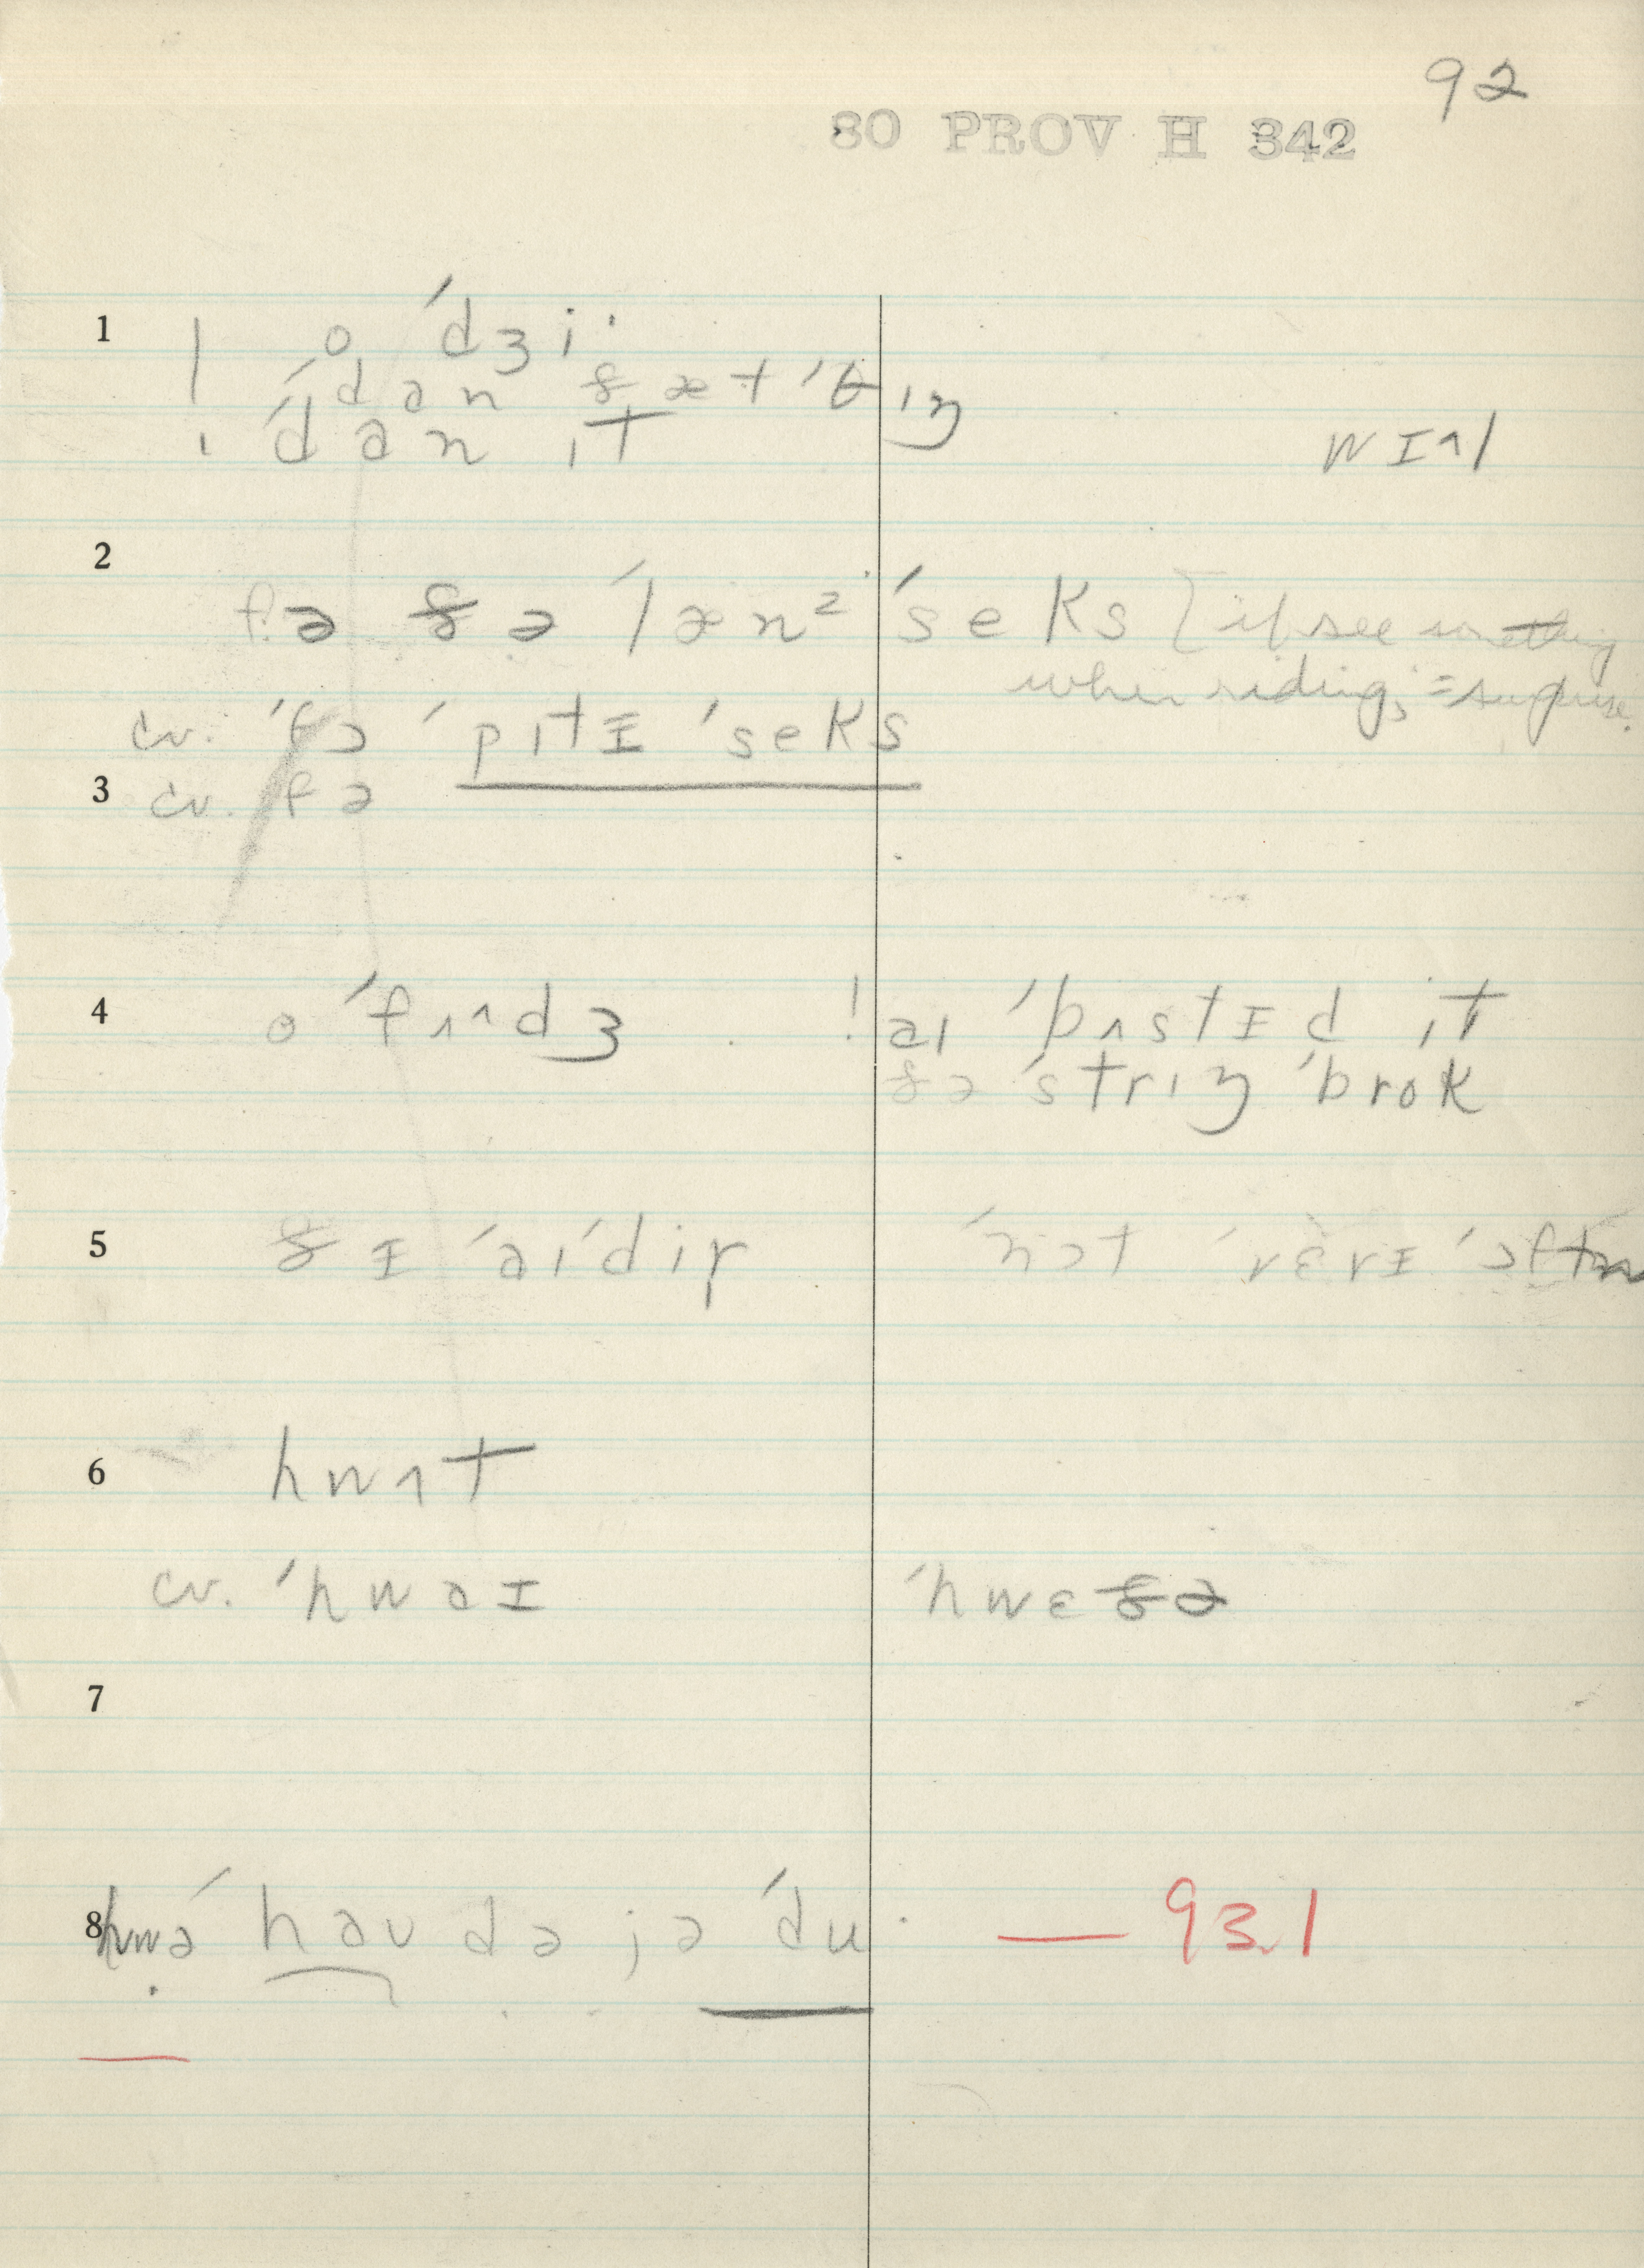 92
80 PROV H 342
1 | o ˈdʒiˑ
| ˈdan ðæt ˈθɪŋ
! ˈdan ɪt wɪʌl
2 fə ðə ˈlænᶻ ˈseks [if see something
when riding, = surprise.
cv. ˈfɔ ˈpɪtɪ ˈseks
3 cv. fə
4 o ˈfʌʌdʒ . ! aɪ ˈbʌstɪd ɪt
ðə ˈstrɪŋ ˈbrok
5 ðɪ ˈaɪˈdiɾ ˈnɔt ˈvɛrɪ ˈɔftn
6 hwʌt
cv. ˈhwaɪ ˈhwɛðə
7
8 hwə ˈhau də jə ˈdu. — 93.1